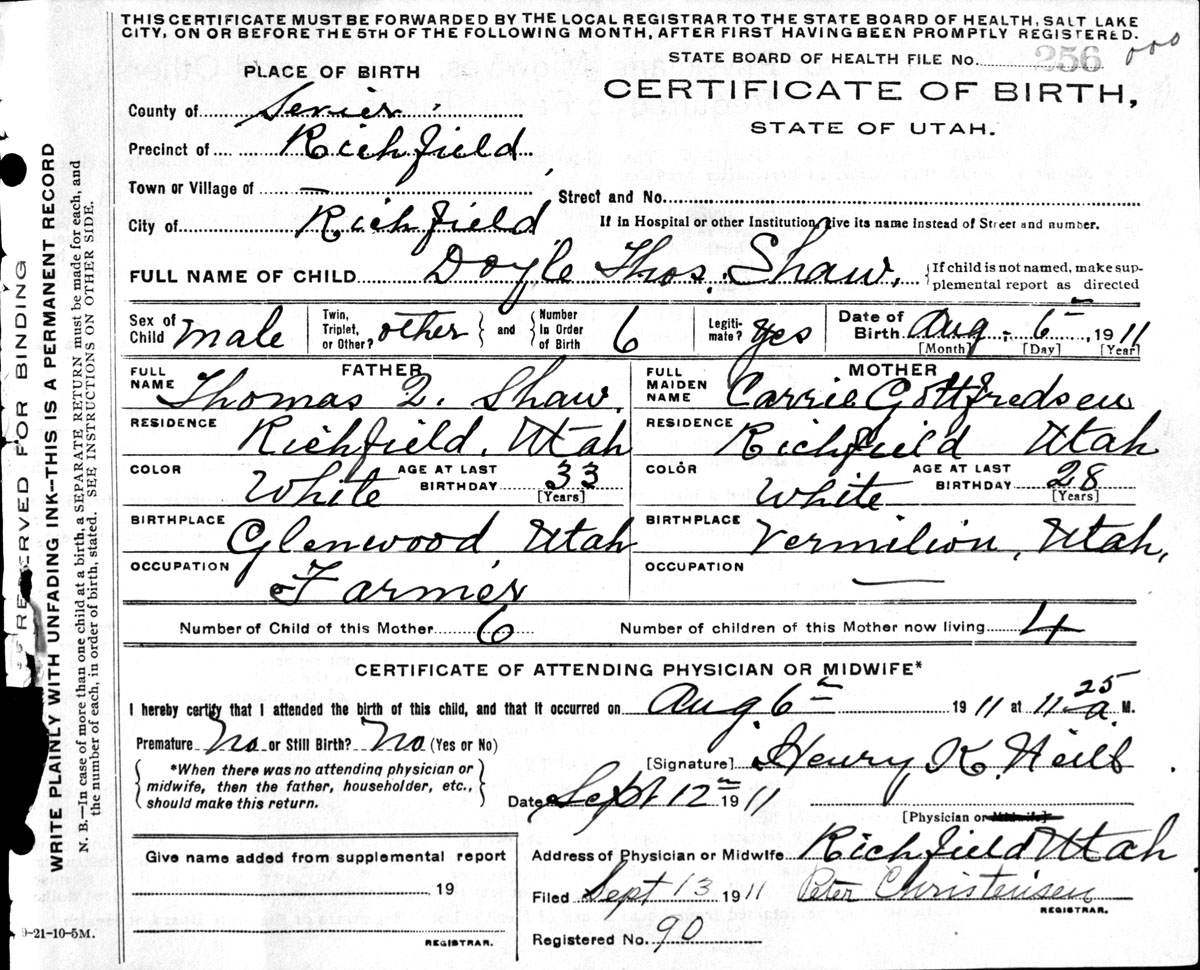 THIS CERTIFICATE MUST BE FORWARDED BY THE LOCAL REGISTRAR TO THE STATE BOARD OF HEALTH, SALT LAKE
CITY, ON OR BEFORE THE 5TH OF THE FOLLOWING MONTH, AFTER FIRST HAVING BEEN PROMPTLY REGISTERED.
STATE BOARD OF HEALTH FILE No. 256 000
PLACE OF BIRTH
CERTIFICATE OF BIRTH,
STATE OF UTAH.
County of Sevier
Precinct of Richfield
Town or Village of — Street and No.
City of Richfield If in Hospital or other Institution, give its name instead of Street and number.
FULL NAME OF CHILD Doyle Thos. Shaw. {If child is not named, make sup-
plemental report as directed
Sex of Child male Twin, Triplet, or Other? other and Number In Order of Birth 6 Legiti-mate? Yes Date of Birth Aug. 6 1911
[Month] [Day] [Year]
FATHER MOTHER
FULL NAME Thomas Q. Shaw. FULL MAIDEN NAME Carrie Gottfredsen
RESIDENCE Richfield, Utah RESIDENCE Richfield Utah
COLOR White AGE AT LAST BIRTHDAY 33 [Years] COLOR White AGE AT LAST BIRTHDAY 28 [Years]
BIRTHPLACE Glenwood, Utah BIRTHPLACE Vermilion, Utah,
OCCUPATION Farmer OCCUPATION —
Number of Child of this Mother 6 Number of children of this Mother now living 4
CERTIFICATE OF ATTENDING PHYSICIAN OR MIDWIFE*
I hereby certify that I attended the birth of this child, and that it occurred on Aug. 6 1911 at 11 25 a. M.
Premature No or Still Birth? No (Yes or No)
[Signature] Henry K.
*When there was no attending physician or
midwife, then the father, householder, etc.,
should make this return.
Date Sept 12 1911
[Physician or Midwife]
Give name added from supplemental report
Address of Physician or Midwife Richfield Utah
19
Filed Sept 13 1911 Peter Christensen
REGISTRAR.
REGISTRAR.
Registered No. 90
9-21-10-5M.
RESERVED FOR BINDING
WRITE PLAINLY WITH UNFADING INK--THIS IS A PERMANENT RECORD
N. B.—In case of more than one child at a birth, a SEPARATE RETURN must be made for each, and
the number of each, in order of birth, stated. SEE INSTRUCTIONS ON OTHER SIDE.